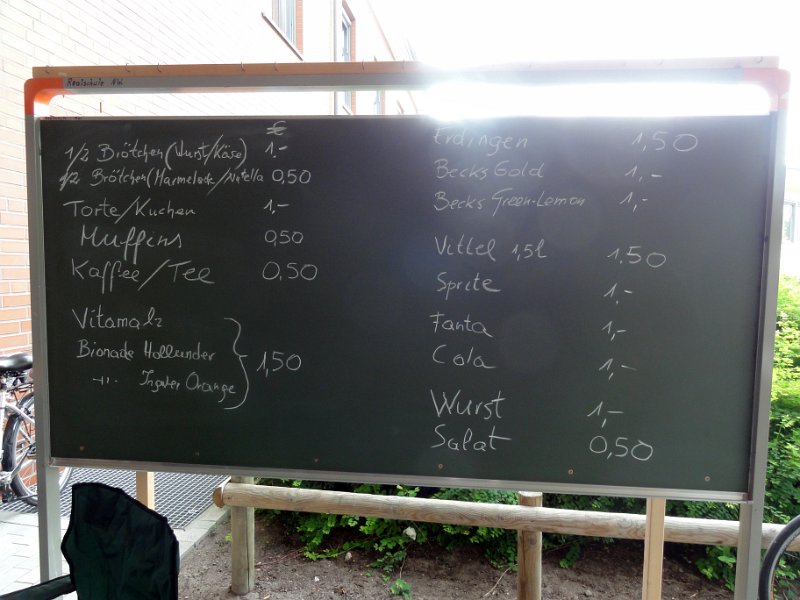 Realschule NW
€
1/2 Brötchen (Wurst/Käse) 1,-
1/2 Brötchen (Marmelade/Nutella 0,50
Torte/Kuchen 1,-
Muffins 0,50
Kaffee/Tee 0,50
Vitamalz
Bionade Hollunder
-"- Ingwer Orange
1,50
Erdingen 1,50
Becks Gold 1,-
Becks Green-Lemon 1,-
Vittel 1,5l 1.50
Sprite 1,-
Fanta 1,-
Cola 1,-
Wurst 1,-
Salat 0,50